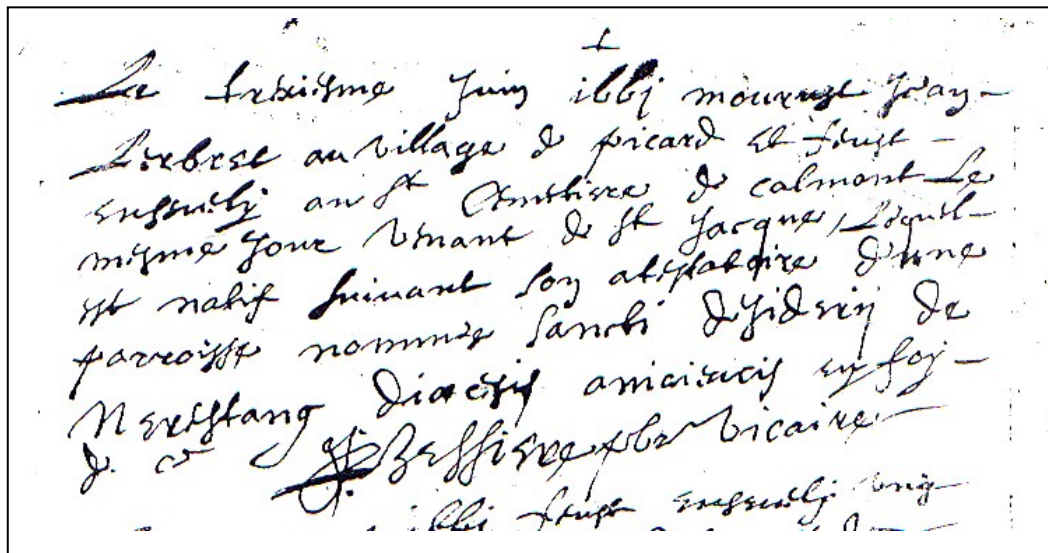 Le tresiesme Juin i66j mourust Jean
Lerbret au village de picard et feust
ensuely au st Cimetiere de calmont Le
mesme Jour Venant de st Jacque, Lequel
est natif suivant son atestatoire d'une
parroisse nommee sancti desiderij de
Nerestang diocesis aniciencis en foj
de ce Bessiere pbr Vicaire
i66j feust ensuely ung